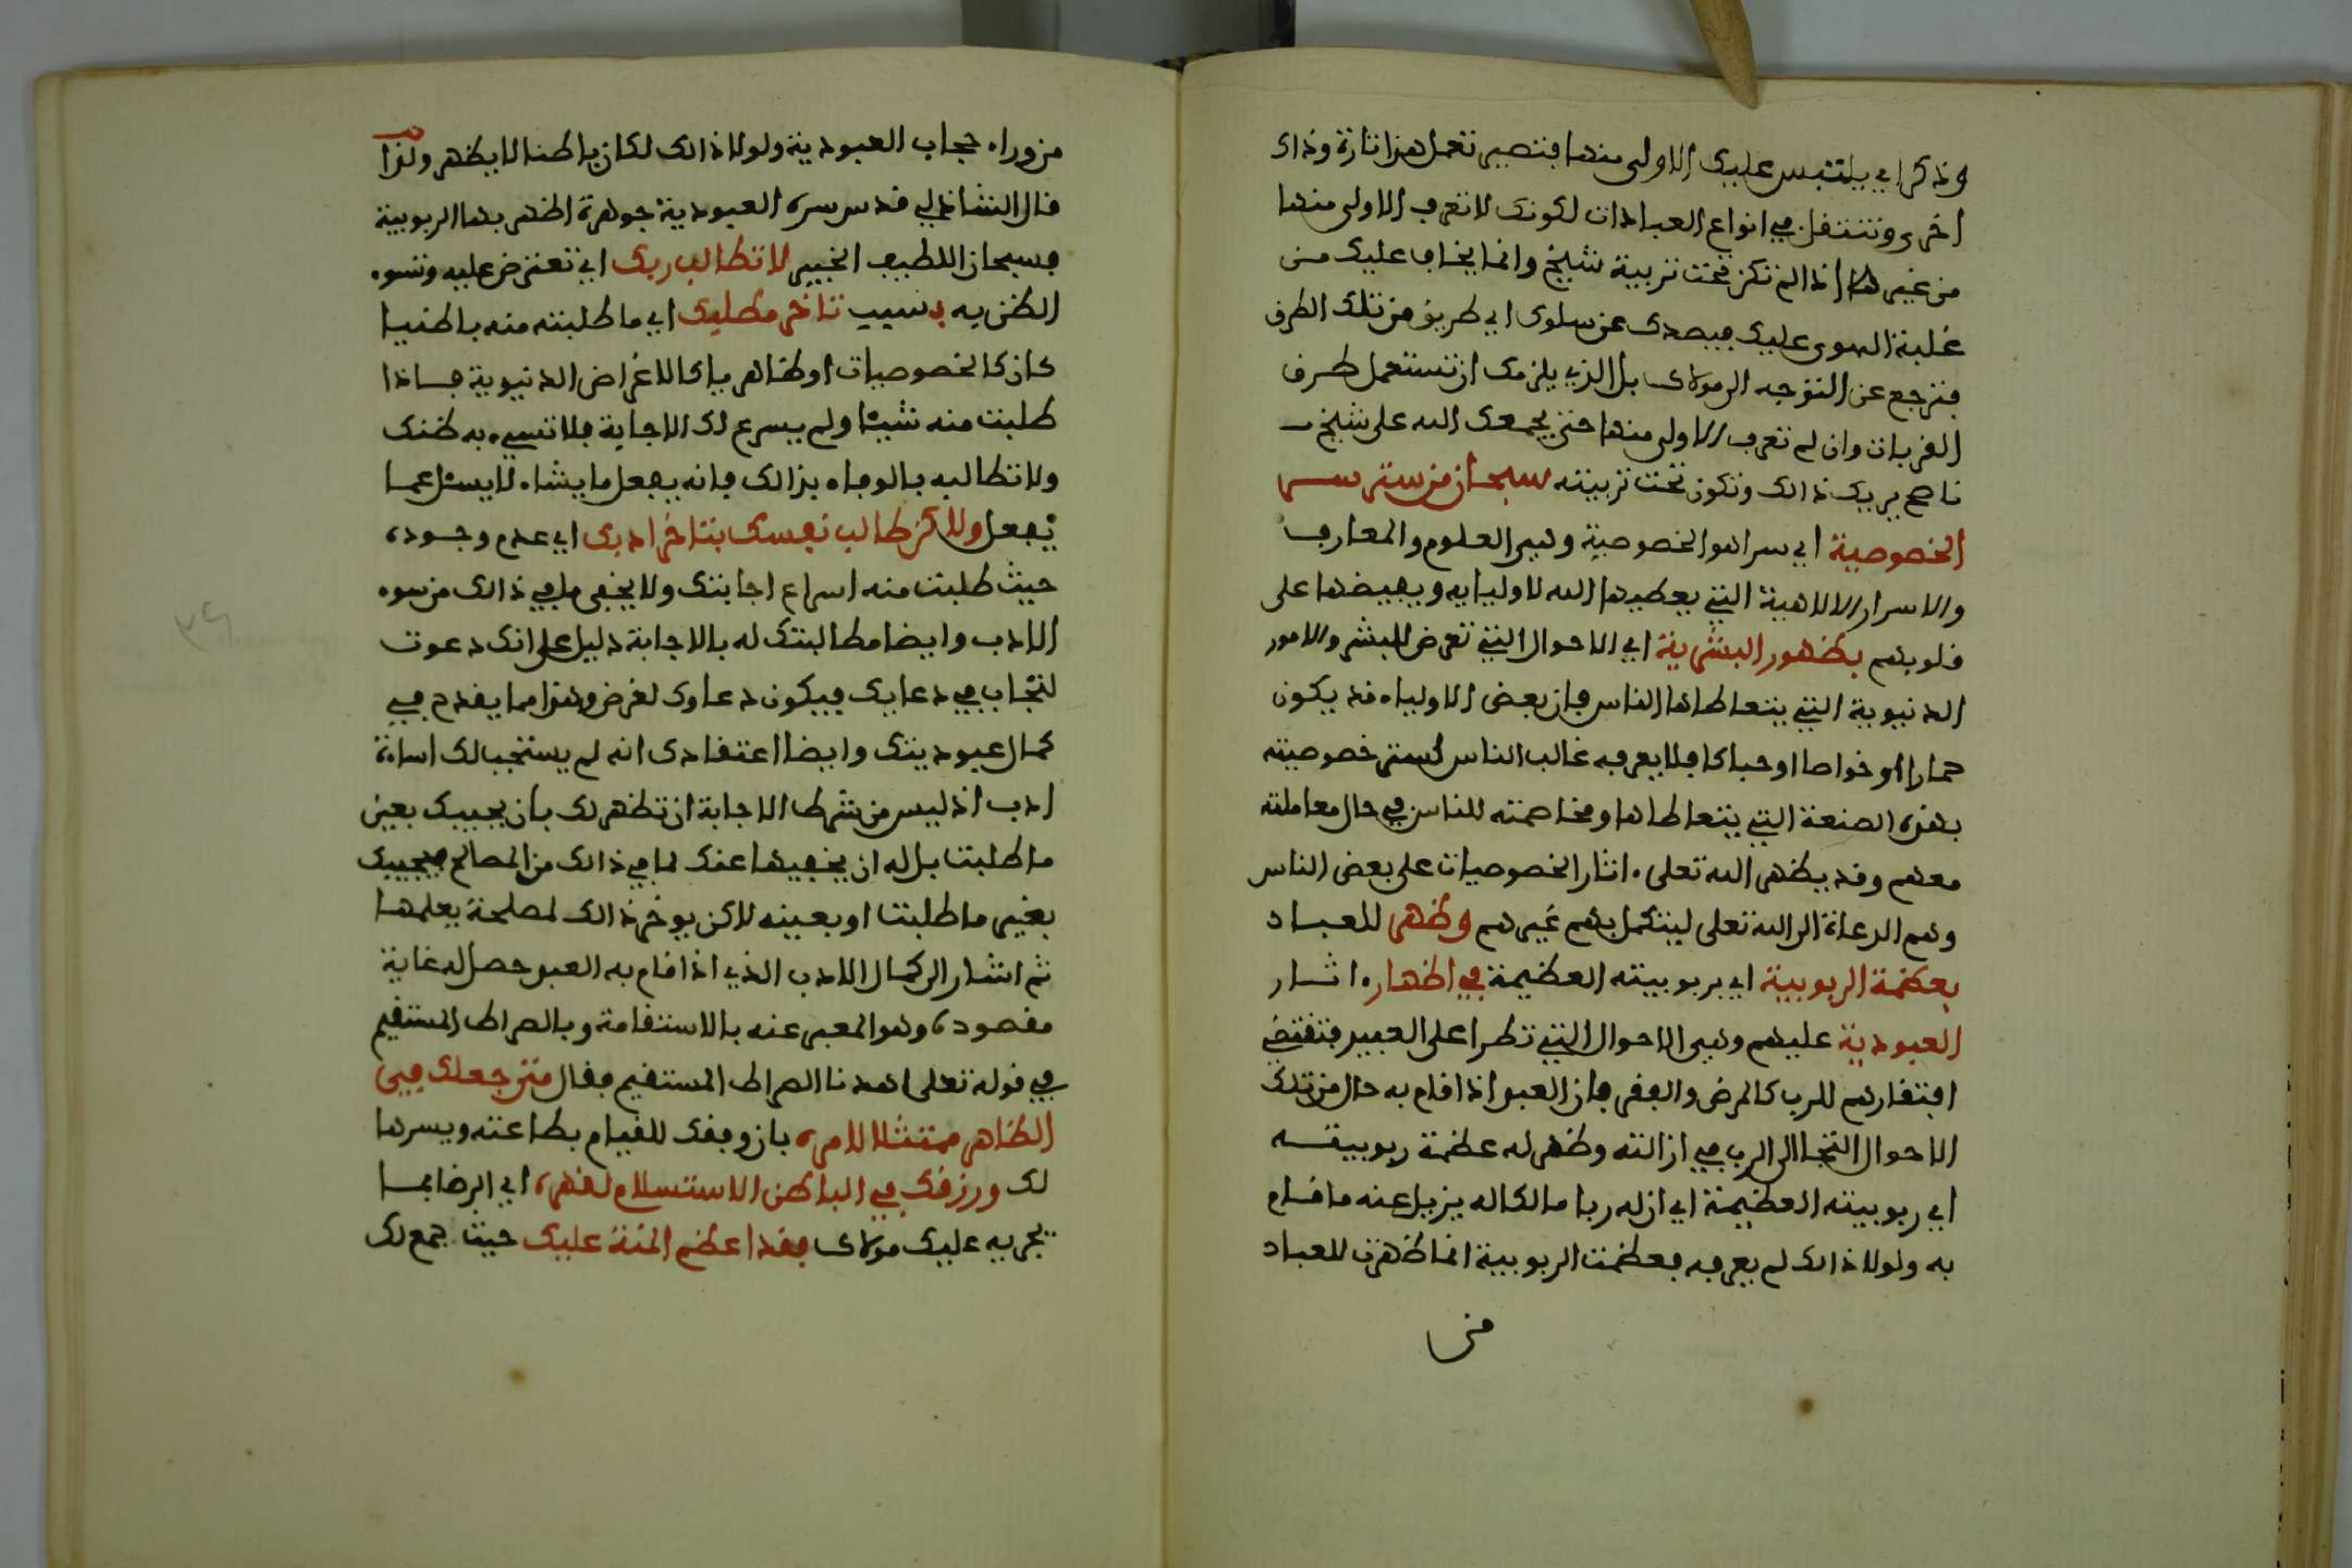 وذكر اي يلتبس عليك الاولى منها فتصير تعمل هذا تارة وذاك
اخرى وتنتقل في انواع العبادات لكونك لا تعرف الاولى منها
من غيرها اذا لم تكن تحت تربية شيخ وانما يخاف عليك من
غلبة الهوى عليك فيصدك عن سلوك اي طريق من تلك الطرق
فترجع عن التوجه الى مولاك بل الذي يلزمك ان تستعمل طرق
القربات وان لم تعرف الاولى منها حتى يجمعك الله على شيخ
ناصح يريك ذالك وتكون تحت تربيته سبحان من ستر سر
الخصوصية اي سرا هو الخصوصية وهي العلوم والمعارف
والاسرار الالاهية التي يعطيها الله لاوليايه ويفيضها على
قلوبهم بظهور البشرية اي الاحوال التي تعرض للبشر والامور
الدنيوية التي يتعاطاها الناس فان بعض الاولياء قد يكون
حمارا او خواصا او حباكا فلا يعرفه غالب الناس لستر خصوصيته
بهذه الصنعة التي يتعاطاها ومخاصمته للناس في حال معاملته
معهم وقد يظهر الله تعلى ءاثار الخصوصيات على بعض الناس
وهم الدعاة الى الله تعلى ليتكمل بهم غيرهم وظهر للعباد
بعظمة الربوبية اي بربوبيته العظيمة في اظهاره اثار
العبودية عليهم وهي الاحوال التي تطرا على العبيد فتقتضي
افتقارهم للرب كالمرض والفقر فان العبد اذا قام به حال من تلك
الاحوال التجا الى الرب في ازالته وظهر له عظمة ربوبيته
اي ربوبيته العظيمة اي ان له ربا مالكا له يزيل عنه ما قام
به ولولا ذالك لم يعرفه فعظمت الربوبية انما ظهرت للعباد
من
من وراء حجاب العبودية ولولا ذالك لكان باطنا لا يظهر ولذا
قال الشاذلي قدس سره العبودية جوهرة اظهر بها الربوبية
فسبحان اللطيف الخبير لا تطالب ربك اي تعترض عليه وتسوء
الظن به بسبب تاخر مطلبك اي ما طلبته منه باطنيا
كان كالخصوصيات او ظاهريا كالاغراض الدنيوية فاذا
طلبت منه شيئا ولم يسرع لك الاجابة فلا تسيء به ظنك
ولا تطالبه بالوفاء بذالك فانه يفعل ما يشاء لا يسئل عما
يفعل ولاكن طالب نفسك بتاخر ادبك اي عدم وجوده
حيث طلبت منه اسراع اجابتك ولا يخفى ما في ذالك من سوء
الادب وايضا مطالبتك له بالاجابة دليل على انك دعوت
لتجاب في دعايك فيكون دعاوك لغرض وهذا مما يقدح في
كمال عبوديتك وايضا اعتقادك انه لم يستجب لك اساءة
ادب اذ ليس من شرط الاجابة ان تظهر لك بان يجيبك بعين
ما طلبت بل له ان يخفيها عنك لما في ذالك من المصالح فيجيبك
بغير ما طلبت او بعينه لاكن يوخر ذالك لمصلحة يعلمها
ثم اشار الى كمال الادب الذي اذا قام به العبد حصل له غاية
مقصوده وهو المعبر عنه بالاستقامة وبالصراط المستقيم
في قوله تعلى اهدنا الصراط المستقيم فقال متى جعلك في
الظاهر ممتثلا لامره بان وفقك للقيام بطاعته ويسرها
لك ورزقك في الباطن الاستسلام لقهره اي الرضا بما
يجريه عليك مولاك فقد اعظم المنة عليك حيث جمع لك